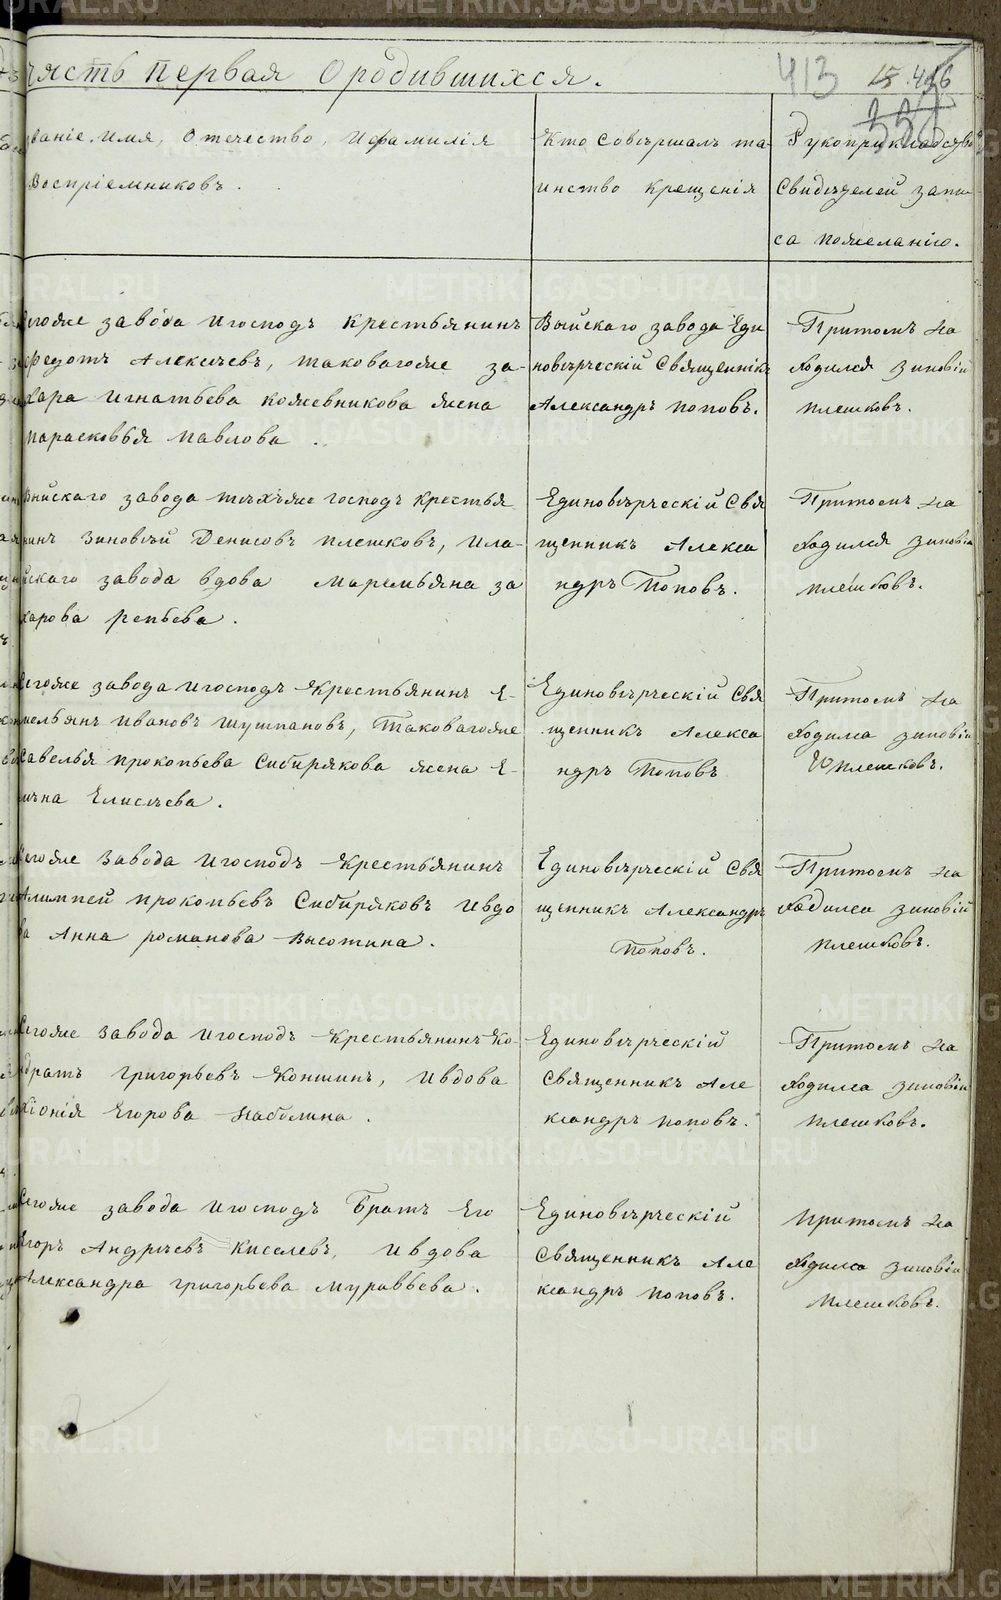 часть первая о родившихся.
413
15. 416
331
званіе, имя, отчество, и фамилія
воспріемниковъ.
Кто совершалъ та-
инство крещенія
Рукоприкладство
свидетелей запи-
са по желанію.
Сегоже завода и господъ крестьянинъ
Федотъ Алексѣевъ, таковагоже за-
хара Игнатьева кожевникова жена
Парасковья Павлова.
Выйскаго завода Еди
новѣрческій Священникъ
Александръ Поповъ.
Притомъ на
ходился зиновій
плешковъ.
Выйскаго завода тѣхъже господъ крестья
нинъ Зиновѣй Денисовъ плешковъ,
скаго завода вдова Маремьяна за
харова репьева.
Единовѣрческій Свя
щенникъ Алекса
ндръ Поповъ.
Притомъ на
ходился зиновій
плешковъ.
Сегоже завода и господъ Крестьянинъ Е-
мельянъ Ивановъ Шушпановъ, Таковагоже
Савелья Прокопьева Сибирякова жена Е-
Елисѣева.
Единовѣрческій Свя
щенникъ Алекса
ндръ Поповъ
Притомъ на
ходилса зиновій
плешковъ.
Сегоже завода и господъ Крестьянинъ
Алимпей Прокопьевъ Сибиряковъ и вдо
ва Анна романова Высотина.
Единовѣрческій Свя
щенникъ Александръ
Поповъ.
Притомъ на
ходилса зиновій
плешковъ.
Сегоже завода и господъ Крестьянинъ Ко-
дратъ Григорьевъ Коншинъ, и вдова
Хіонія Егорова Наболина.
Единовѣрческій
Священникъ Але
ксандръ Поповъ.
Притомъ на
ходилса зиновій
плешковъ.
Сегоже завода и господъ Братъ Его
Егоръ Андрѣевъ Киселевъ, и вдова
Александра Григорьева Муравьева.
Единовѣрческій
Священникъ Але
ксандръ Поповъ.
Притомъ на
ходилса зиновій
плешковъ.
METRIKI.GASO-URAL.RU